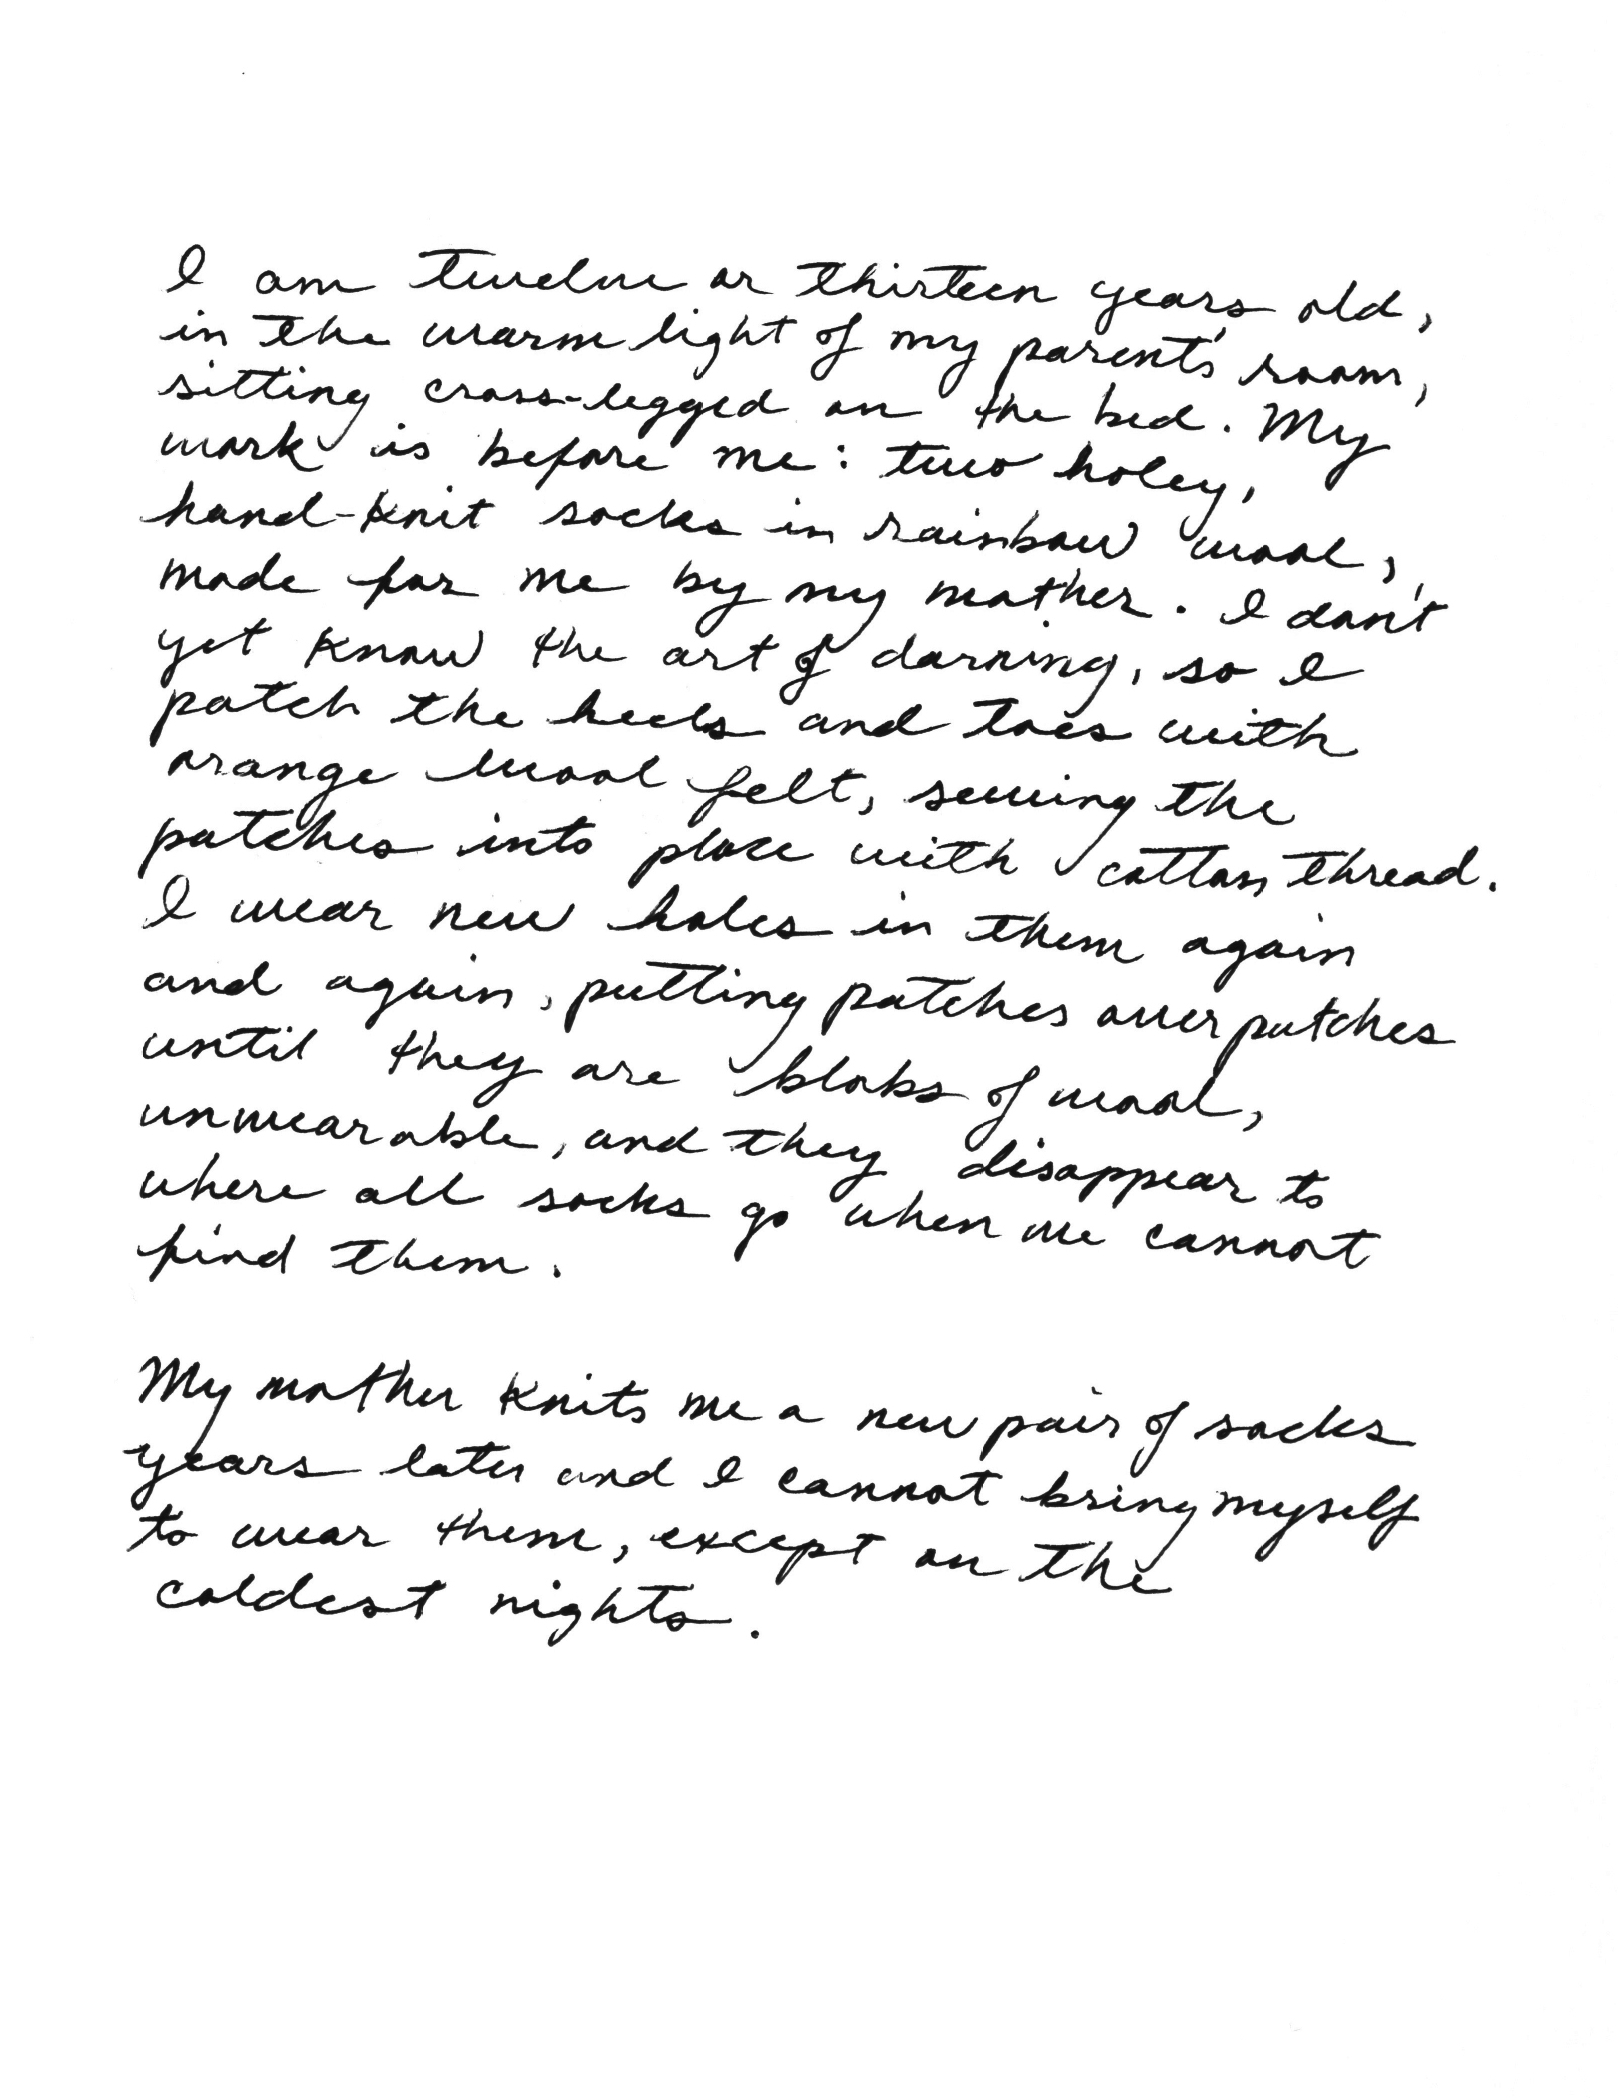 I am twelve or thirteen years old,
in the warm light of my parent's room,
sitting cross-legged on the bed. My
work is before me: two holey,
hand-knit socks in rainbow wool,
made for me by my mother. I don't
yet know the art of darning, so I
patch the heels and toes with
orange wool felt, sewing the
patches into place with cotton thread.
I wear new holes in them again
and again, putting patches over patches
until they are blobs of wool,
unwearable, and they disappear to
where all socks go when we cannot
find them.
My mother knits me a new pair of socks
years later and I cannot bring myself
to wear them, except on the
coldest nights.